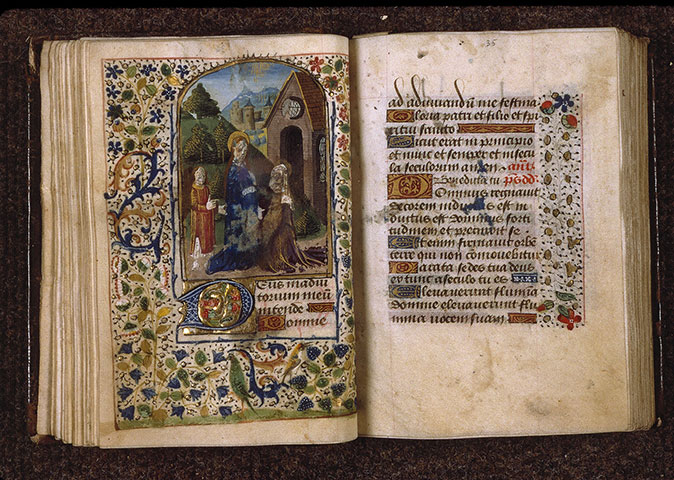 Deus in adiu
torium meū
intende
Domine
35
ad adiuuandū me festina
Gloria patri et filio et spi
ritui sancto
Sicut erat in principio
et nunc et semper et in secu
la seculorum amen. anť.
Benedicta tu p̄s dd.
Dominus regnauit
decorem indutus est in
dutus est dominus forti
tudinem et precinxit se
Etenim firmauit orbē
terre qui non cōmouebitur
Parata sedes tua deus
ex tunc a seculo tu es
Eleuauerunt flumina
domine eleuauerunt flu
mina uocem suam